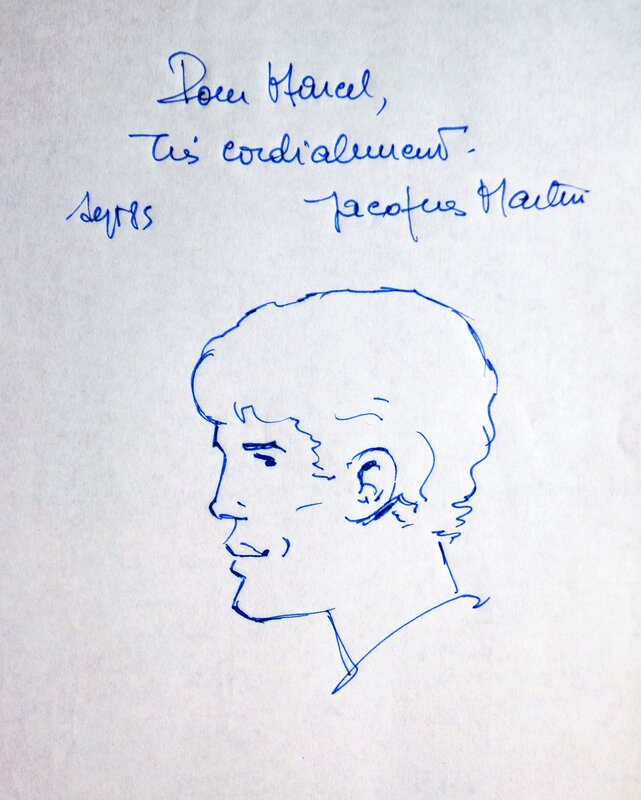 Pour Marcel,
Très cordialement.
Sept 85 Jacques Martin